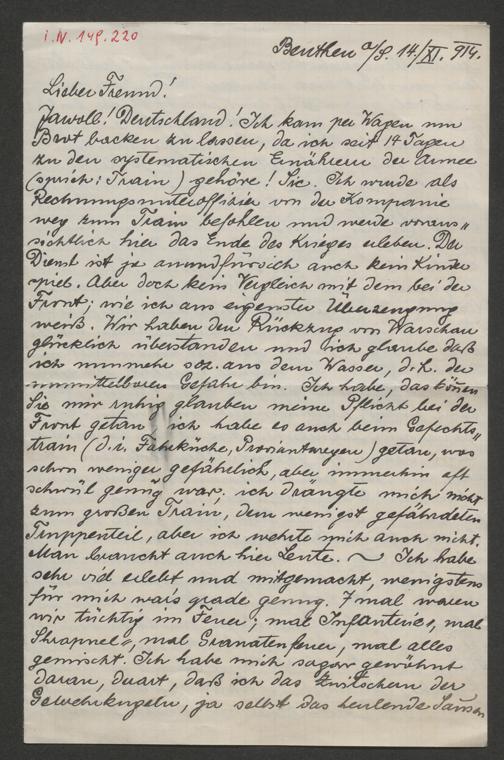 i.N. 149.220
Beuthen o/S. 14./XI. 914.
Lieber Freund!
Jawoll! Deutschland! Ich kam per Wagen um
Brot backen zu lassen, da ich seit 14 Tagen
zu den systematischen Ernährern der Armee
(sprich: Train) gehöre! Sic. Ich wurde als
Rechnungsunteroffizier von der Kompanie
weg zum Train befohlen und werde voraus„
sichtlich hier das Ende des Krieges erleben. Der
Dienst ist ja anundfürsich auch kein Kinder
spiel. Aber doch kein Vergleich mit dem bei der
Front; wie ich aus eigenster Überzeugung
weiß. Wir haben den Rückzug von Warschau
glücklich überstanden und ich glaube daß
ich nunmehr soz. aus dem Wasser, d.h. der
unmittelbaren Gefahr bin. Ich habe, das können
Sie mir ruhig glauben meine Pflicht bei der
Front getan, ich habe es auch beim Gefechts„
train (d.i. Fahrküche, Proviantwagen) getan, was
schon weniger gefährlich, aber immerhin oft
schwül genug war, ich drängte mich nicht
zum großen Train, dem wenigst gefährdeten
Truppenteil, aber ich wehrte mich auch nicht.
Man braucht auch hier Leute. ~ Ich habe
sehr viel erlebt und mitgemacht, wenigstens
für mich war's grade genug. 7 mal waren
wir tüchtig im Feuer; mal Infanterie, mal
Shrapnel, mal Granatenfeuer, mal alles
gemischt. Ich habe mich sogar gewöhnt
daran, duart, daß ich das Zwitschern der
Gewehrkugeln, ja selbst das heulende Sausen